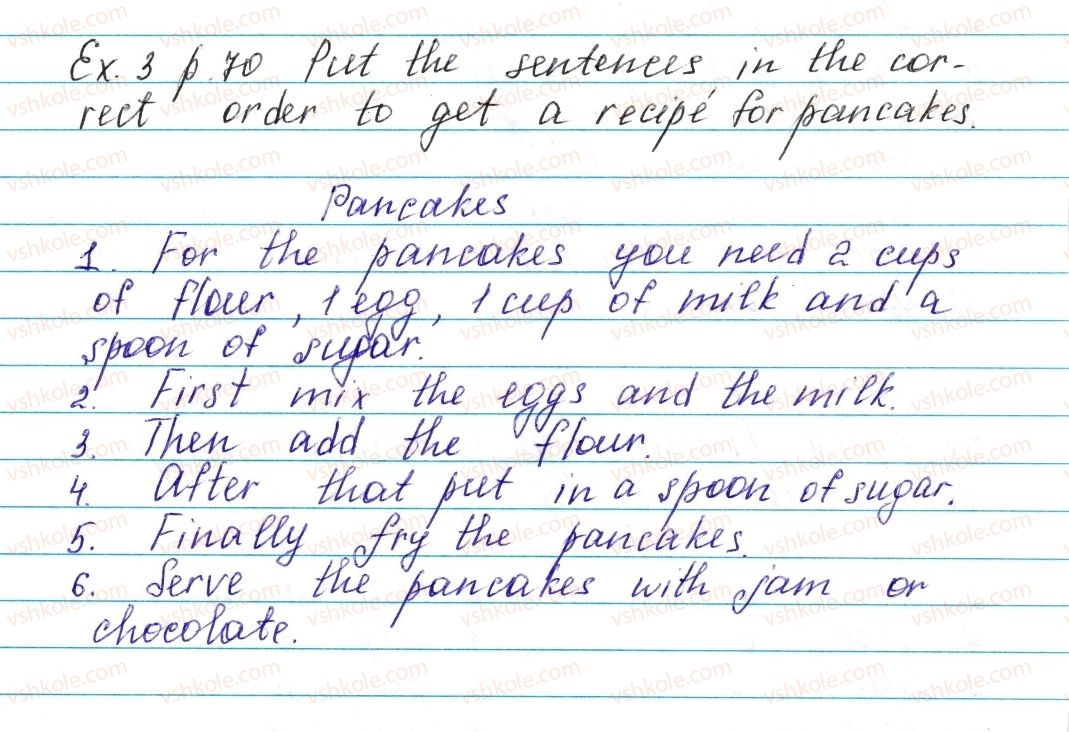 Ex. 3 p. 70 Put the sentences in the cor-
rect order to get a recipé for pancakes.
Pancakes
1. For the pancakes you need 2 cups
of flour, 1 egg, 1 cup of milk and a
spoon of sugar.
2. First mix the eggs and the milk.
3. Then add the flour.
4. After that put in a spoon of sugar.
5. Finally fry the pancakes.
6. Serve the pancakes with jam or
chocolate.
vshkole.com